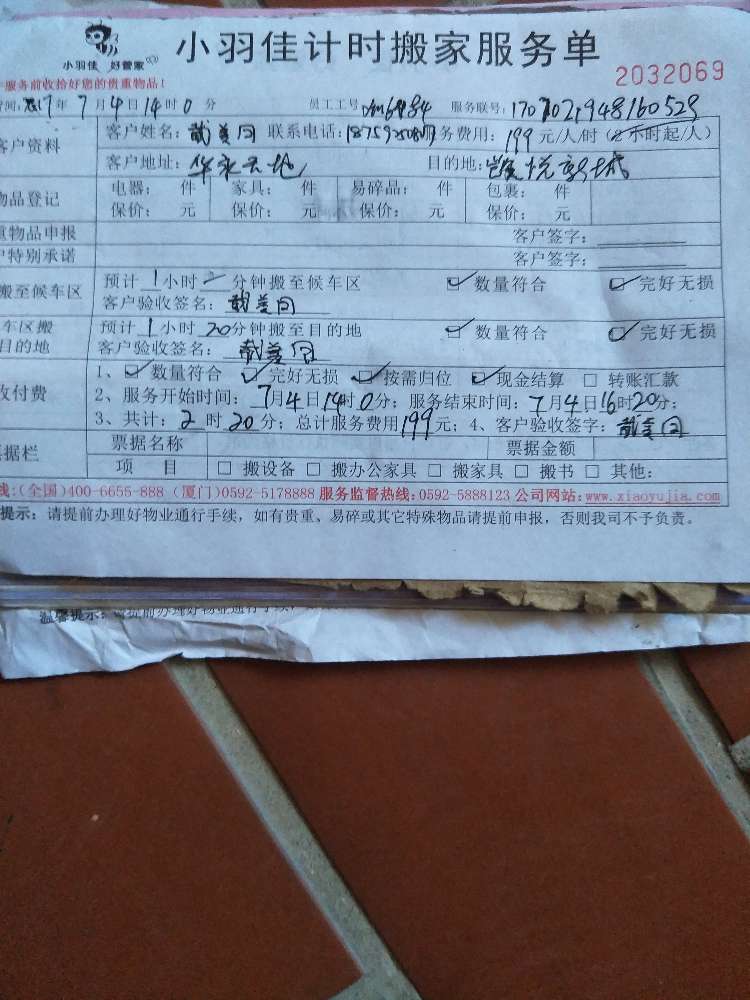 小羽佳 好管家
小羽佳计时搬家服务单
服务前收拾好您的贵重物品!
2032069
2017年 7月4日14时0分 员工工号 服务联号: 1707021948160529
客户资料 客户姓名: 联系电话: 服务费用: 199 元/人/时(2小时起/人)
客户地址: 目的地:
物品登记 电器: 件 家具: 件 易碎品: 件 包裹: 件
保价: 元 保价: 元 保价: 元 保价: 元
重物品申报 客户签字:
户特别承诺 客户签字:
搬至候车区 预计1小时 分钟搬至候车区 数量符合 完好无损
客户验收签名:
车区搬 预计1小时20分钟搬至目的地 数量符合 完好无损
目的地 客户验收签名:
收付费 1、 数量符合 完好无损 按需归位 现金结算 □ 转账汇款
2、服务开始时间: 7月4日14时0分; 服务结束时间: 7月4日16时20分;
3、共计: 2时20分; 总计服务费用199元; 4、客户验收签字:
票据栏 票据名称 票据金额
项 目 □ 搬设备 □ 搬办公家具 □ 搬家具 □ 搬书 □ 其他:
线:(全国)400-6655-888 (厦门)0592-5178888 服务监督热线:0592-5888123 公司网站:www.xiaoyujia.com
提示: 请提前办理好物业通行手续, 如有贵重、易碎或其它特殊物品请提前申报, 否则我司不予负责。
温馨提示:请提前办理好物业通行手续,